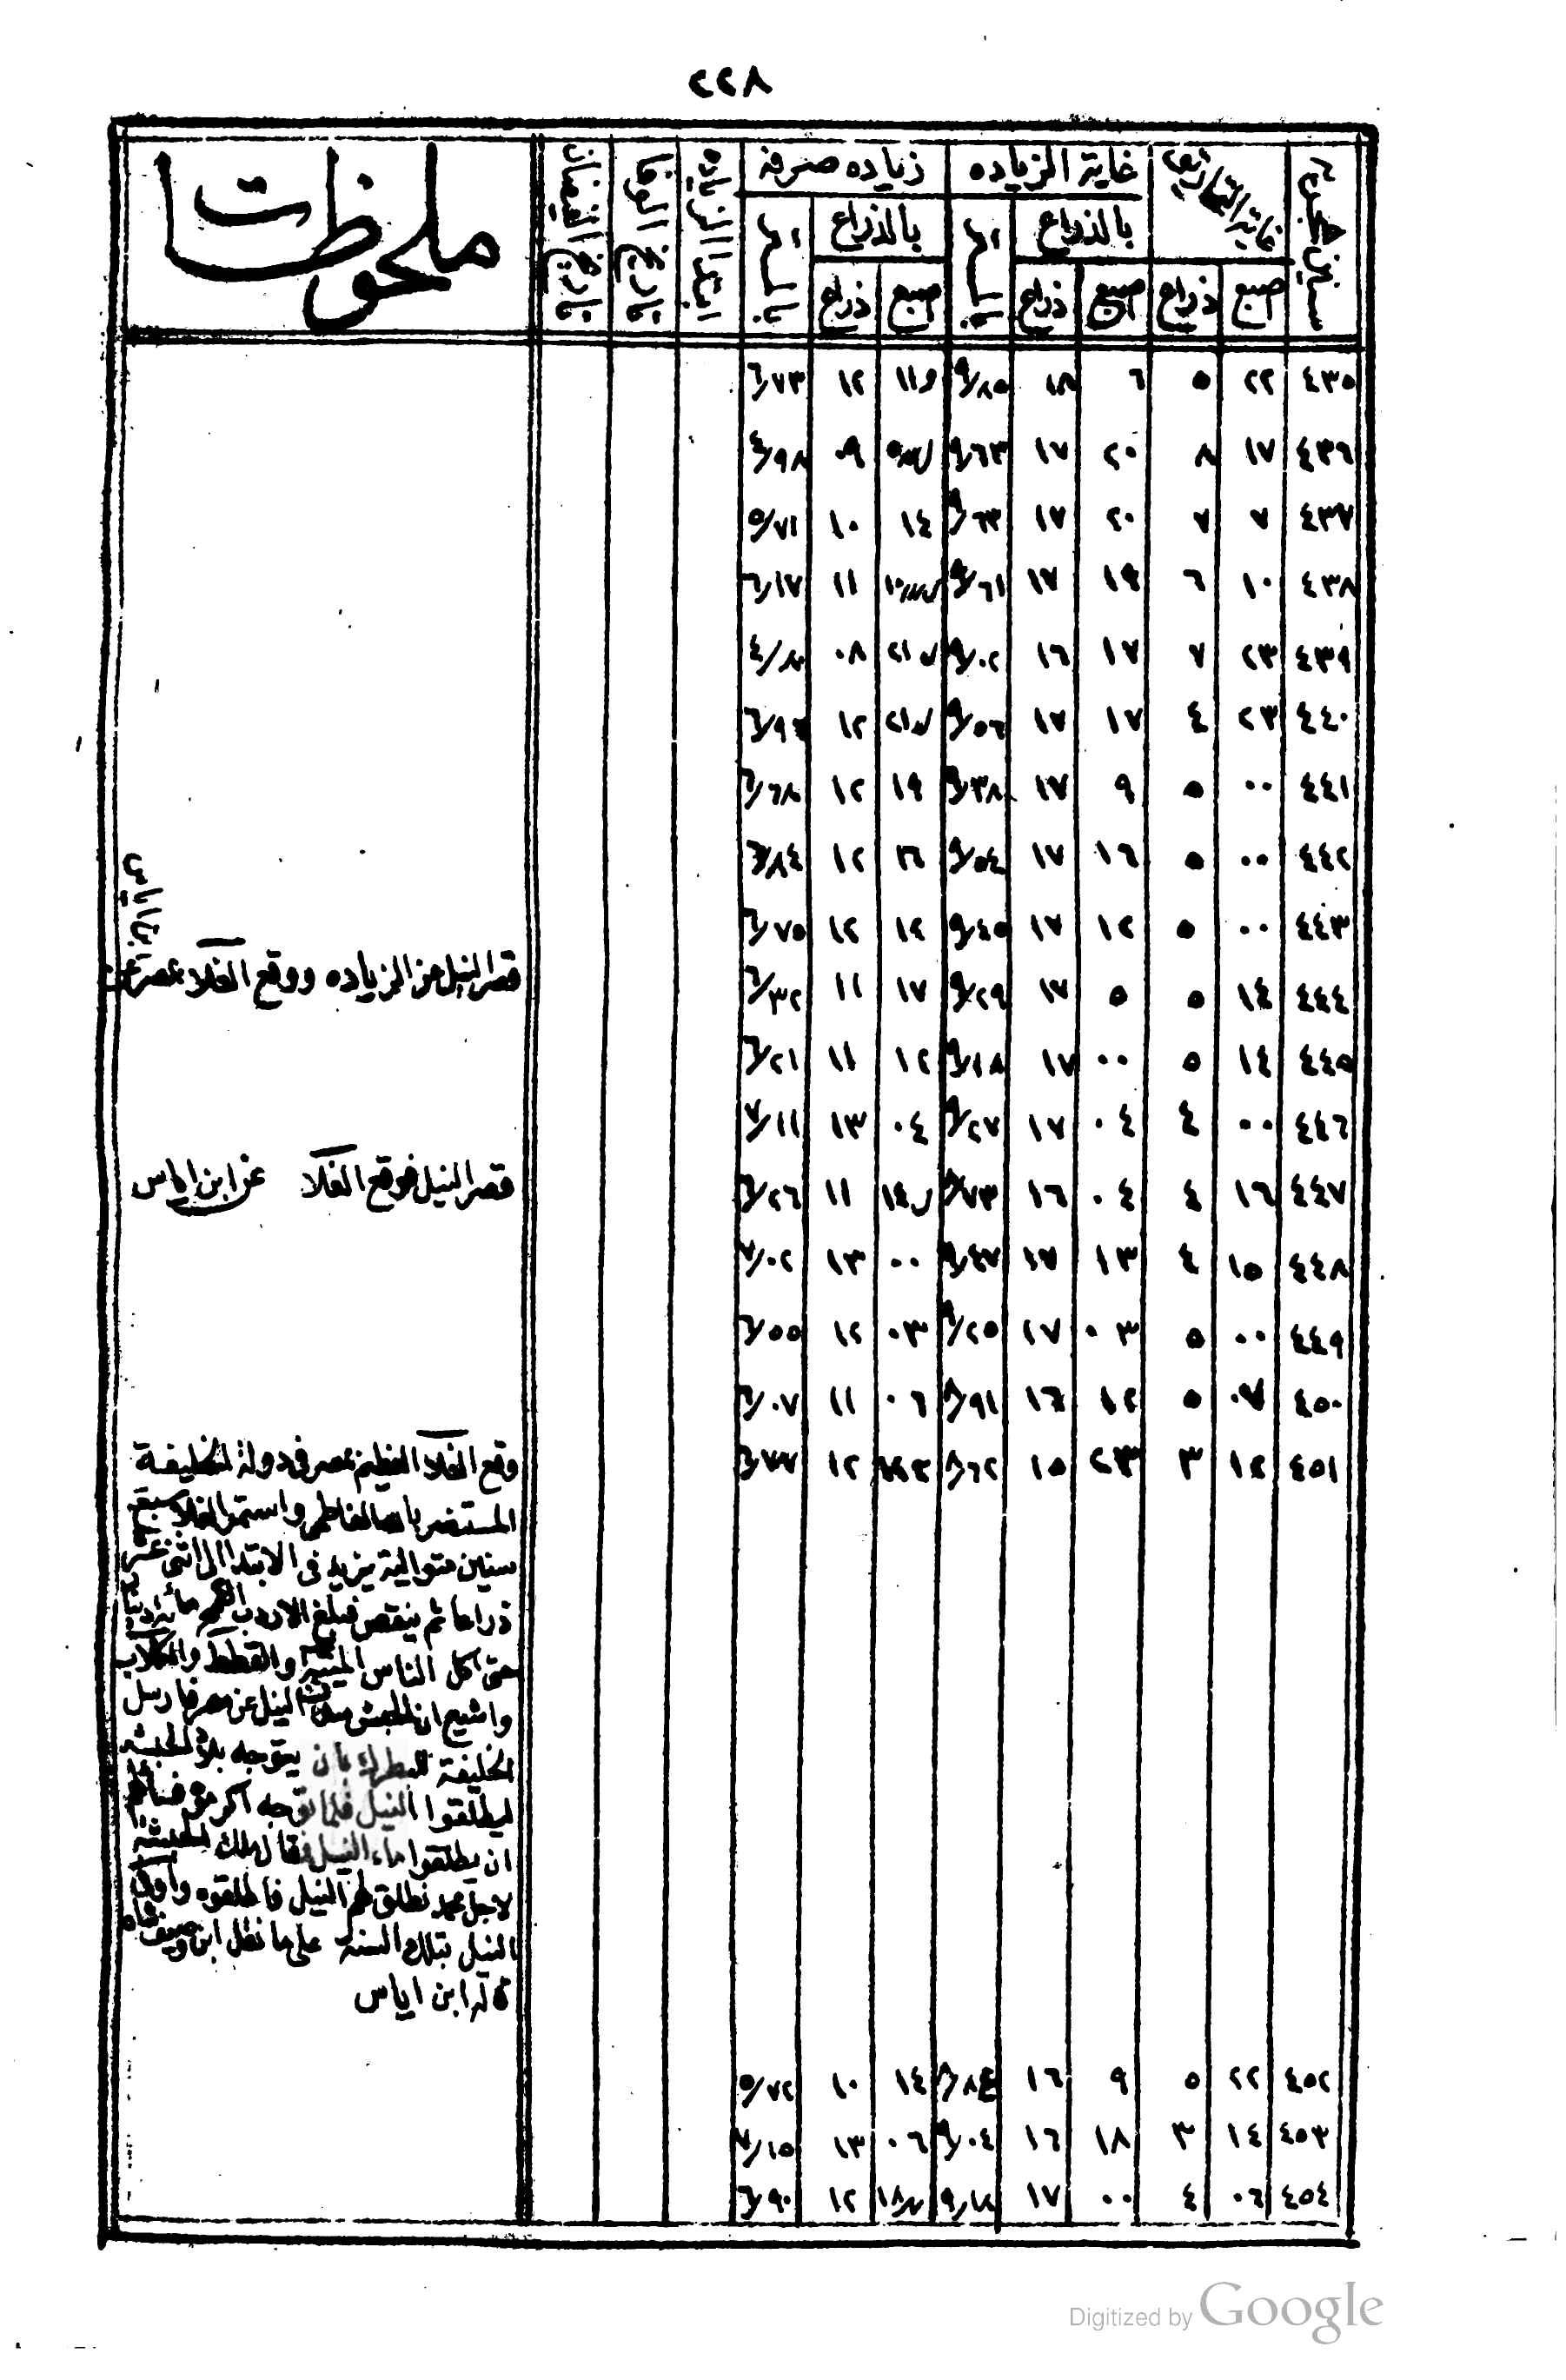 ٢٢٨
سنين هجرية | غاية التحاريق | غاية الزياده | زياده صرفه | ابتدا الزياده | تاريخ الوفا | تاريخ الفيضان | ملحوظات
بالذراع | بالامتار | بالذراع | بالامتار
اصبع | ذراع | اصبع | ذراع | اصبع | ذراع
٤٣٥ | ٢٢ | ٥ | ٦ | ١٨ | ٩/٨٥ | | ١٢ | ٦/٧٣
٤٣٦ | ١٧ | ٨ | ٢٠ | ١٧ | ٩/٦٣ | | ٠٩ | ٤/٩٨
٤٣٧ | ٧ | ٧ | ٢٠ | ١٧ | ٩/٦٣ | ١٤ | ١٠ | ٥/٧١
٤٣٨ | ١٠ | ٦ | ١٩ | ١٧ | ٩/٦١ | | ١١ | ٦/١٧
٤٣٩ | ٢٣ | ٧ | ١٧ | ١٦ | ٩/٠٢ | | ٠٨ |
٤٤٠ | ٢٣ | ٤ | ١٧ | ١٧ | ٩/٥٦ | | ١٢ |
٤٤١ | ٠٠ | ٥ | ٩ | ١٧ | ٩/٣٨ | ١٩ | ١٢ | ٦/٦٨
٤٤٢ | ٠٠ | ٥ | ١٦ | ١٧ | ٩/٥٤ | | ١٢ | ٦/٨٤
٤٤٣ | ٠٠ | ٥ | ١٢ | ١٧ | ٩/٤٥ | ١٢ | ١٢ | ٦/٧٥
٤٤٤ | ١٤ | ٥ | ٥ | ١٧ | ٩/٢٩ | ١٧ | ١١ | ٦/٣٢ | قصر النيل عن الزياده ووقع الغلاء بمصر عن ابن اياس
٤٤٥ | ١٤ | ٥ | ٠٠ | ١٧ | ٩/١٨ | ١٢ | ١١ | ٦/٢١
٤٤٦ | ٠٠ | ٤ | ٠٤ | ١٧ | ٩/٢٧ | ٠٤ | ١٣ | ٧/١١
٤٤٧ | ١٦ | ٤ | ٠٤ | ١٦ | ٨/٧٣ | | ١١ | ٦/٢٦ | قصر النيل فوقع الغلا عن ابن اياس
٤٤٨ | ١٥ | ٤ | ١٣ | ١٧ | ٩/٤٧ | ٠٠ | ١٣ | ٧/٠٢
٤٤٩ | ٠٠ | ٥ | ٠٣ | ١٧ | ٩/٢٥ | ٠٣ | ١٢ | ٦/٥٥
٤٥٠ | ٠٧ | ٥ | ١٢ | ١٦ | ٨/٩١ | ٠٦ | ١١ | ٦/٠٧
٤٥١ | ١٢ | ٣ | ٢٣ | ١٥ | ٨/٦٢ | | ١٢ | ٦/٧٧ | وقع الغلا العظيم بمصر فى دولة الخليفة
المستنصر بالله الفاطمى واستمر الغلا سبع
سنين متوالية يزيد فى الابتدا الى اثنى عشر
ذراعا ثم ينقص فبلغ الاردب القمح مائة دينار
حتى اكل الناس الميتة والقطط والكلاب
واشيع ان الحبش النيل عن مصر فارسل
الخليفة البطرك بأن يتوجه بلاد الحبشه
ليطلقوا النيل فلما توجه اكرموه فسألهم
ان يطلقوا ماء النيل فقال ملك الحبشة
لاجل محمد نطلق لهم النيل فاطلقوه واوفى
النيل بتلك السنة على ما نقل ابن وصيف شاه
قاله ابن اياس
٤٥٢ | ٢٢ | ٥ | ٩ | ١٦ | ٨/٨٤ | ١٤ | ١٠ | ٥/٧٢
٤٥٣ | ١٤ | ٣ | ١٨ | ١٦ | ٩/٠٤ | ٠٦ | ١٣ | ٧/١٥
٤٥٤ | ٠٦ | ٤ | ٠٠ | ١٧ | ٩/١٨ | | ١٢ | ٦/٩٠
Digitized by Google